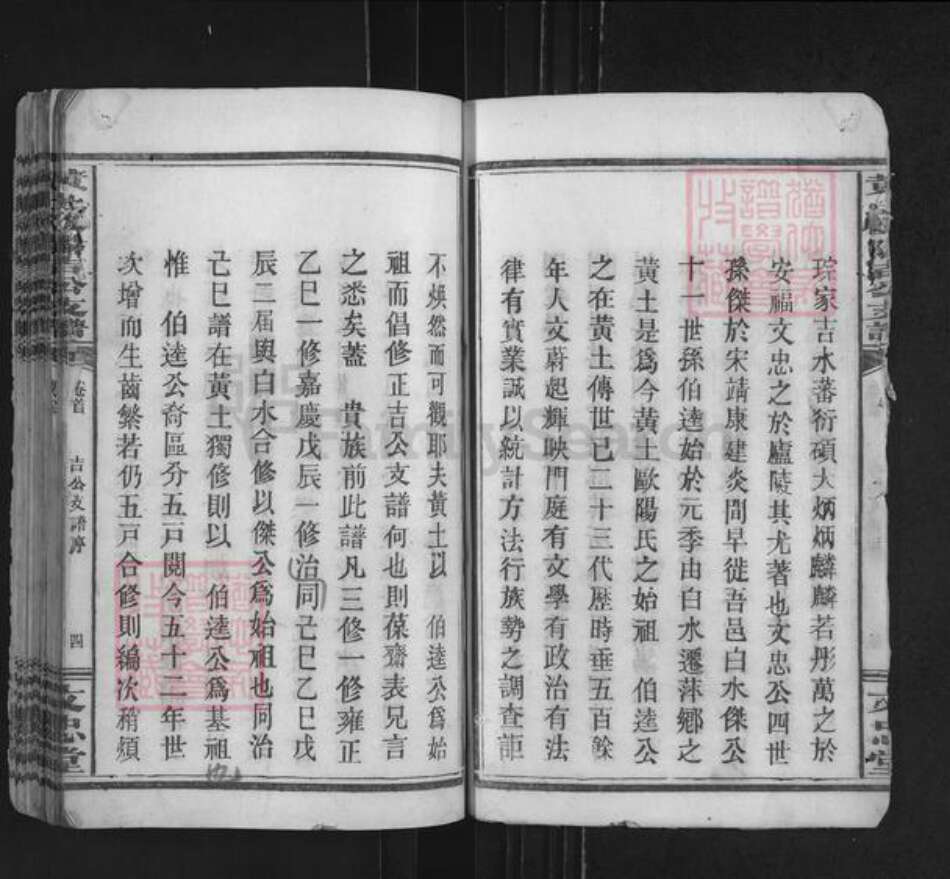 琮家吉水蕃衍碩大炳炳麟麟若彤萬之於
安福文忠之於廬陵其尤著也文忠公四世
孫傑於宋靖康建炎間早徙吾邑白水傑公
十一世孫伯逹始於元季由白水遷萍鄉之
黃土是爲今黃土歐陽氏之始祖 伯逹公
之在黃土傳世已二十三代歷時垂五百餘
年人文蔚起輝映門庭有文學有政治有法
律有實業誠以統計方法行族勢之調查詎
不煥然而可觀耶夫黃土以 伯逹公爲始
祖而倡修正吉公支譜何也則葆齋表兄言
之悉矣蓋 貴族前此譜凡三修一修雍正
乙巳一修嘉慶戊辰一修治同己巳乙巳戊
辰二届與白水合修以傑公爲始祖也同治
己巳譜在黃土獨修則以 伯逹公爲基祖
惟 伯逹公裔區分五戸閱今五十二年世
次增而生齒繁若仍五戸合修則編次稍煩
卷首
吉公支譜序
四
文忠堂
FamilySearch